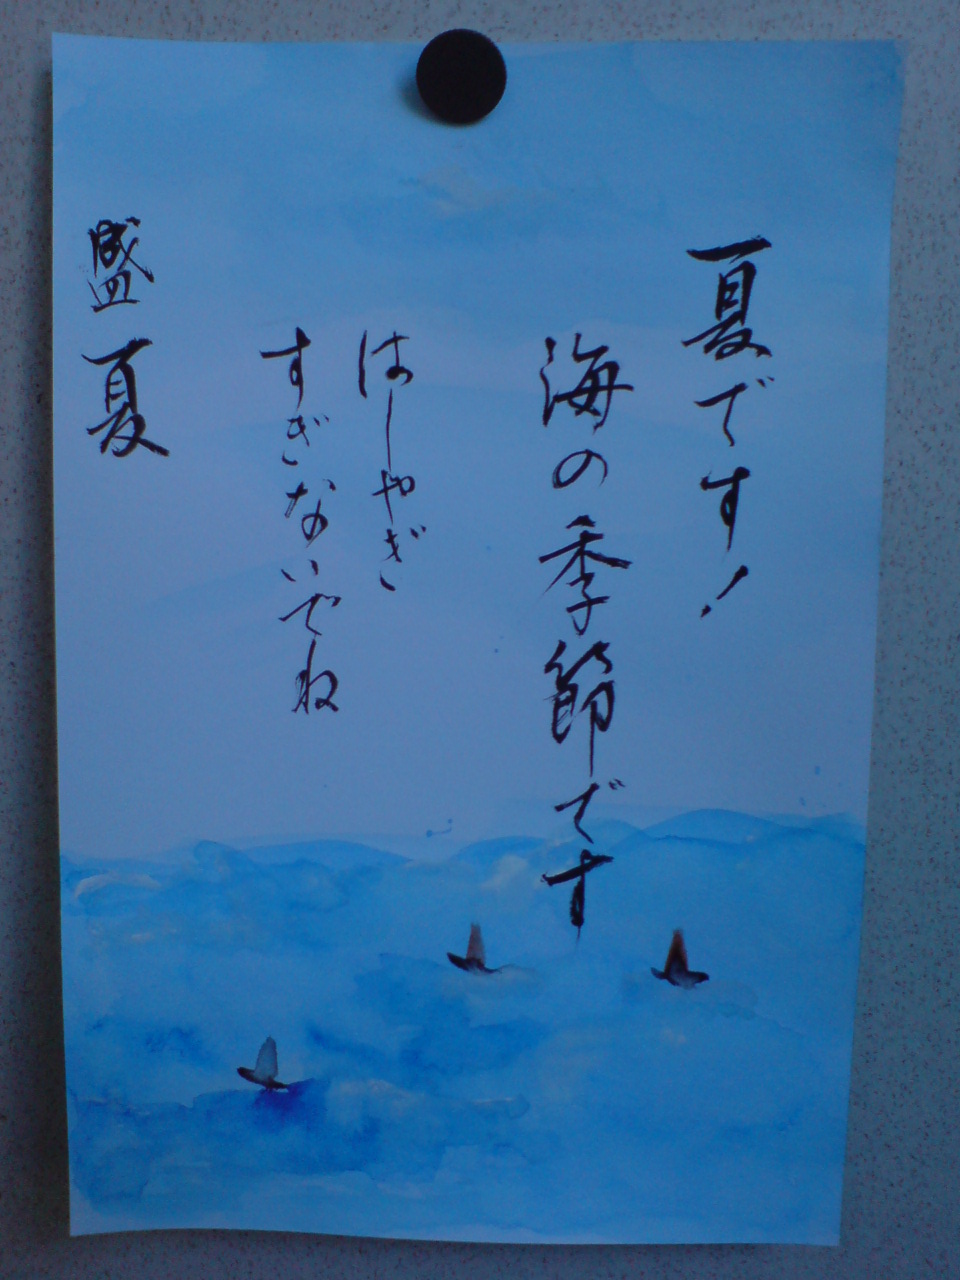 夏です！
海の季節です
はしゃぎ
すぎないでね
盛夏